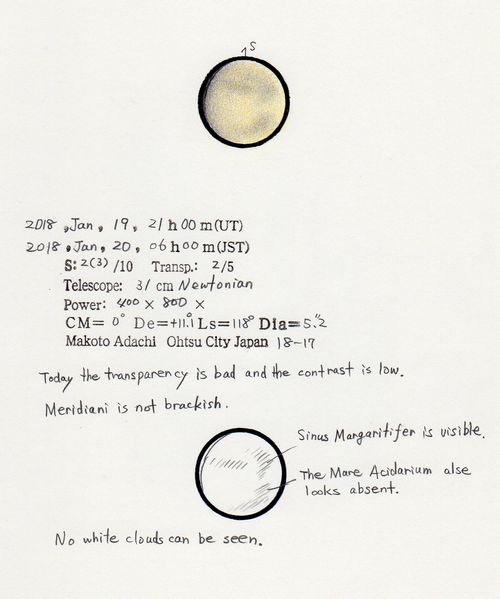 S
2018, Jan, 19, 21h 00 m(UT)
2018, Jan, 20, 06h 00 m(JST)
S: 2(3) /10 Transp.: 2/5
Telescope: 31 cm Newtonian
Power: 400 × 800 ×
CM= 0° De=+11.1° Ls=118° Dia=5."2
Makoto Adachi Ohtsu City Japan 18-17
Today the transparency is bad and the contrast is low.
Meridiani is not brackish.
Sinus Margaritifer is visible.
The Mare Acidarium alse
looks absent.
No white clouds can be seen.